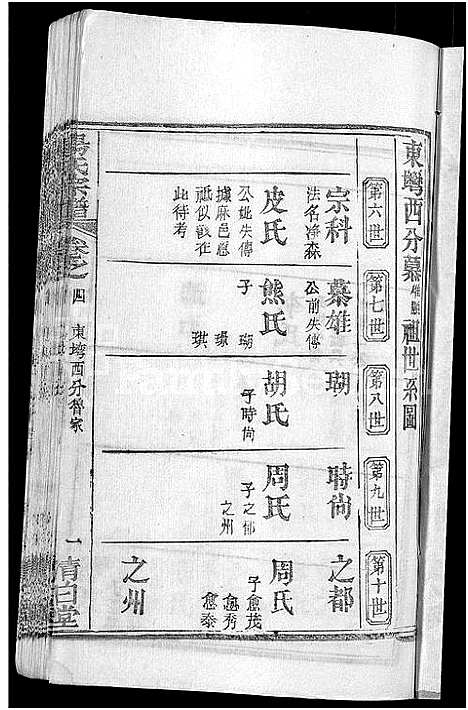 東塆西分慕雄鵬祖世系圖
第六世
宗科
法名淨森
皮氏
公妣失傳
據麻邑墓
祗似戳在
此待考
第七世
慕雄
公前失傳
熊氏
子 瑚
璟
琪
第八世
瑚
胡氏
子時尚
第九世
時尚
周氏
子之都
之州
第十世
之都
周氏
子愈茂
愈秀
愈泰
之州
氏宗譜
卷之
四 東塆西分魯家
一 清白堂